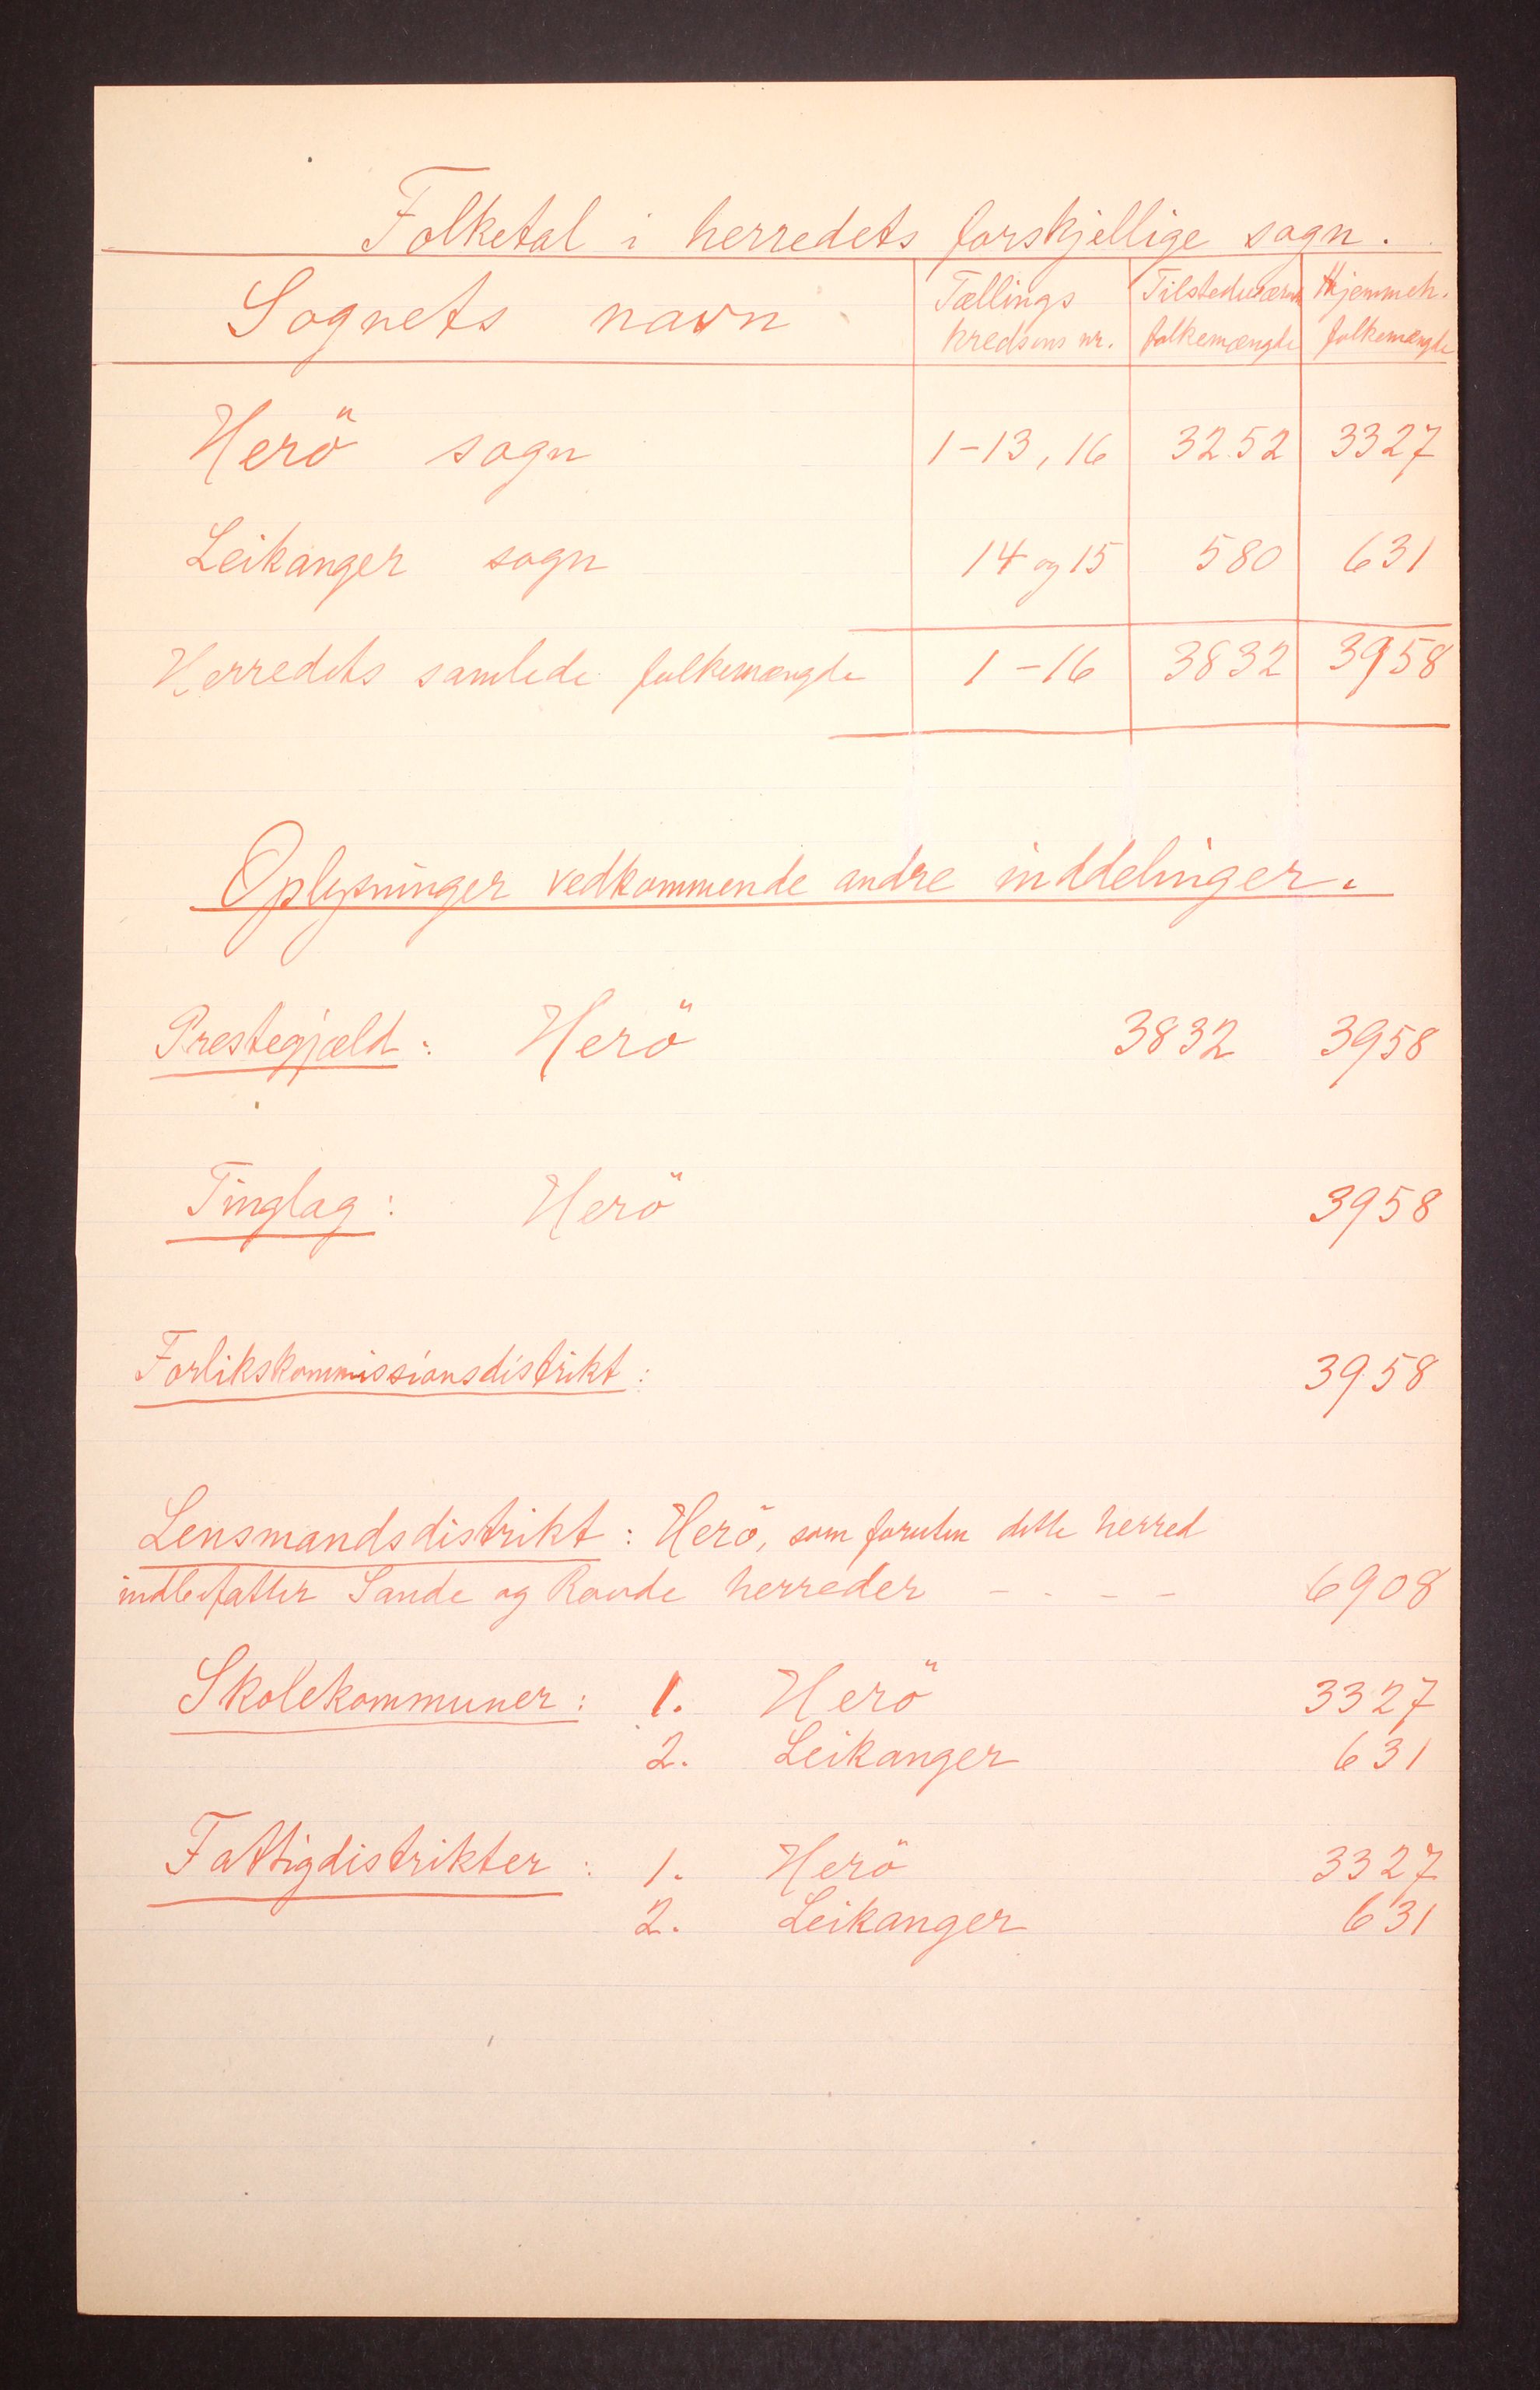 Folketal i herredets forskjellige sogn.
Sognets navn Tællings kredsens nr. Tilstedeværende folkemængde Hjemmeh. folkemængde
Herö sogn 1-13, 16 3252 3327
Leikanger sogn 14 og 15 580 631
Herredets samlede folkemængde 1-16 3832 3958
Oplysninger vedkommende andre inddelinger.
Prestegjæld: Herö 3832 3958
Tinglag: Herö 3958
Forlikskommissionsdistrikt: 3958
Lensmandsdistrikt: Herö, som foruten dette herred
indbefatter Sande og Rovde herreder - - - - 6908
Skolekommuner: 1. Herö 3327
2. Leikanger 631
Fattigdistrikter: 1. Herö 3327
2. Leikanger 631